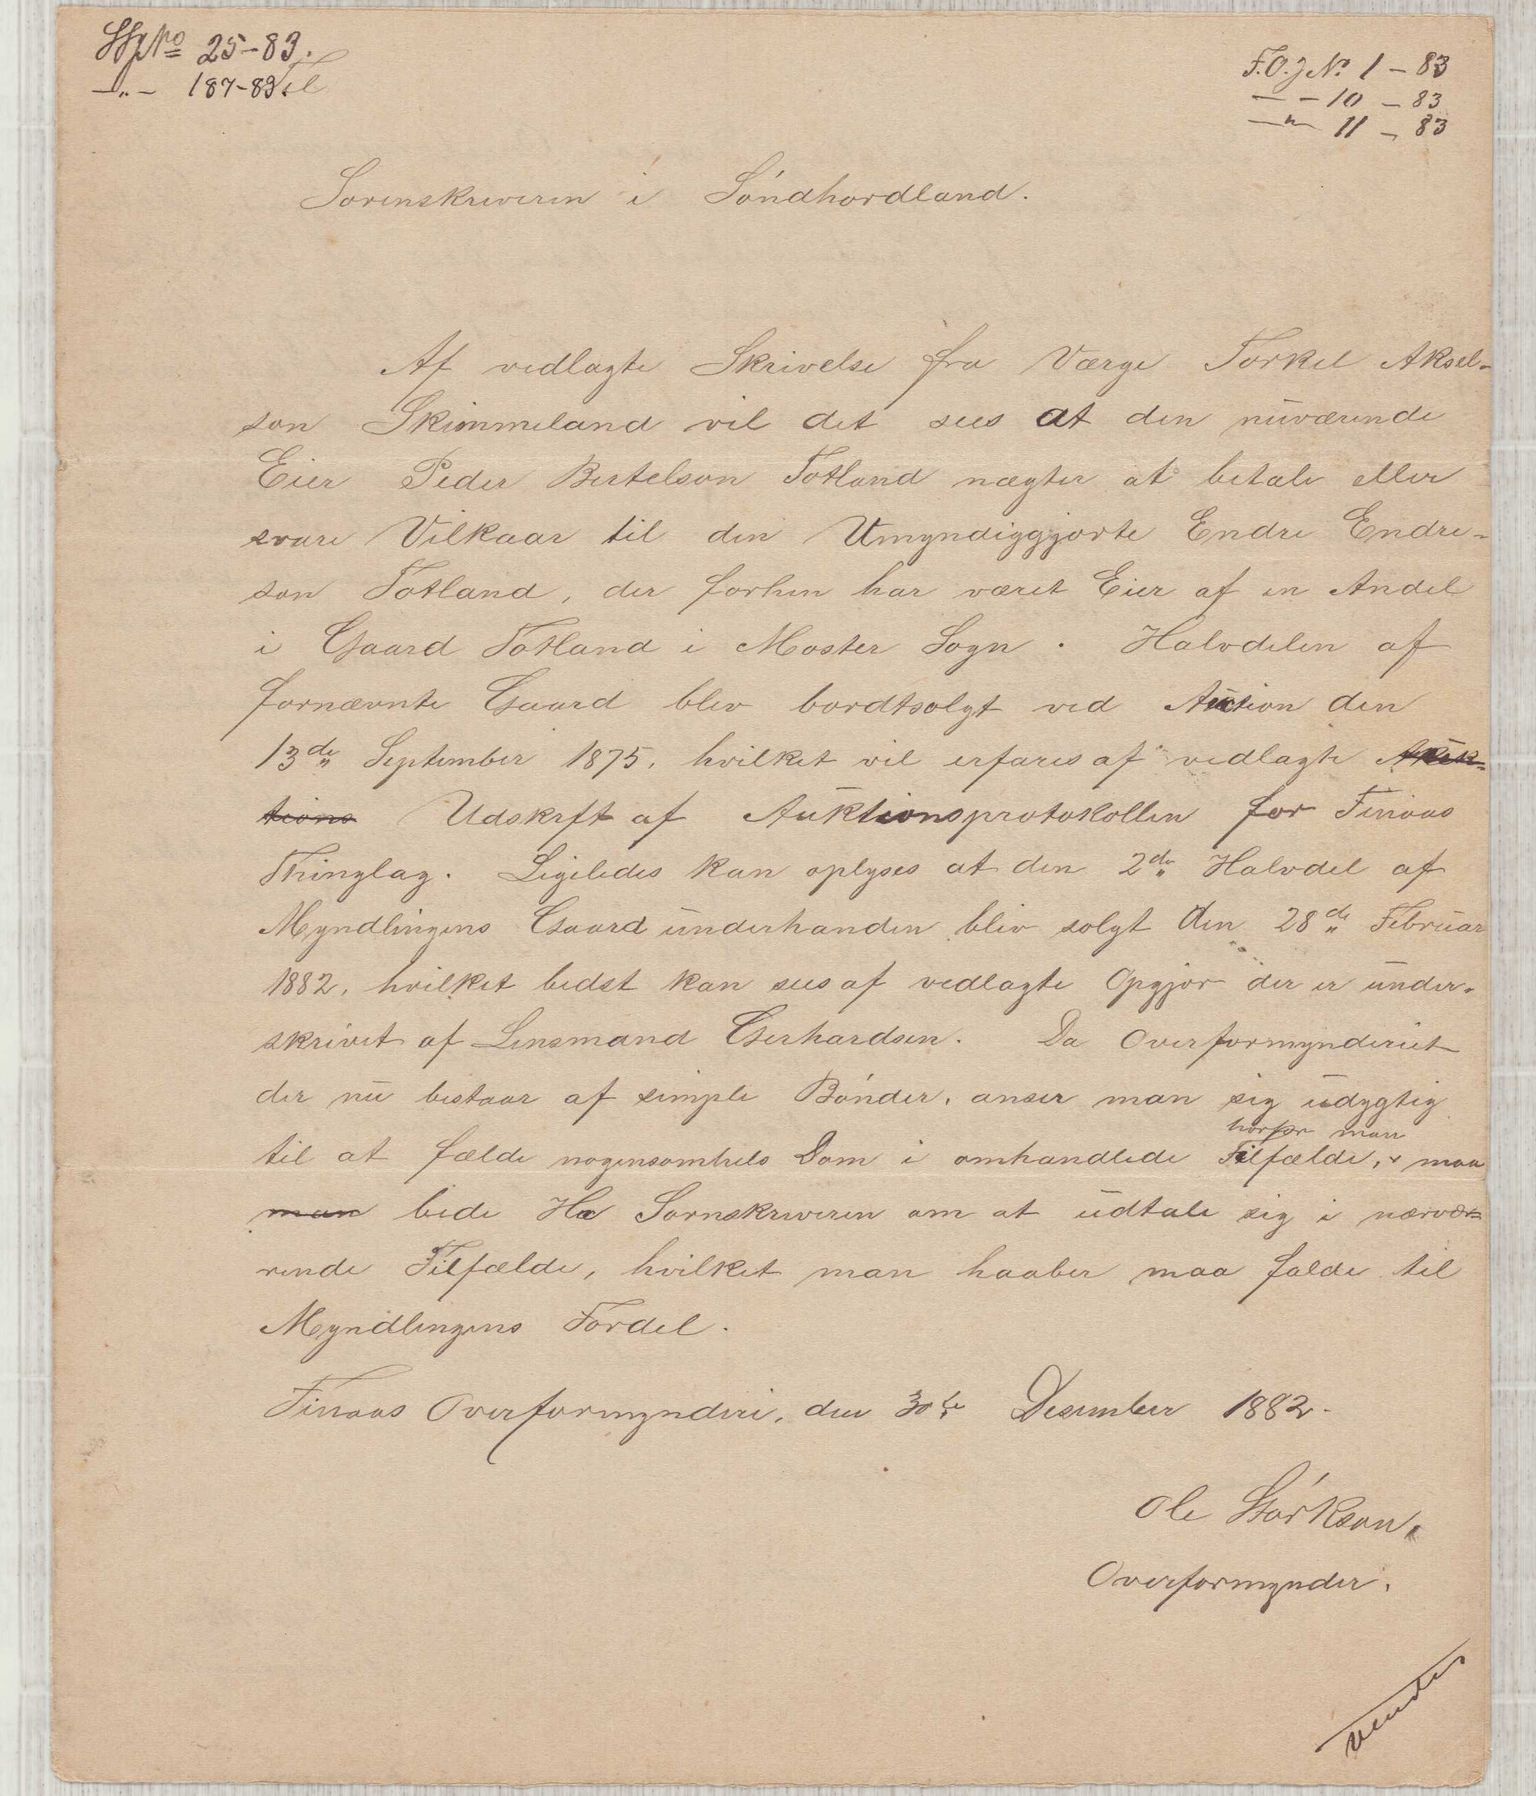 25-83.
-"- 187-83. Til
F.O.J No 1 - 83
- - 10 - 83
-"- 11 - 83
Sorenskriveren i Søndhordland.
Af vedlagte Skrivelse fra Værge Torkel Aksel-
son Skimmeland vil det sees at den nuværende
Eier Peder Bertelson Totland nægter at betale eller
svare Vilkaar til den Umyndiggjorte Endre Endre-
son Totland, der forhen har været Eier af en Andel
i Gaard Totland i Moster Sogn. Halvdelen af
fornævnte Gaard blev bordtsolgt ved Auction den
13de September 1875, hvilket vil erfares af vedlagte Auk-
tions Udskrft af Auktionsprotokollen for Finaas
Thinglag. Ligeledes kan oplyses at den 2de Halvdel af
Myndlingens Gaard underhanden blev solgt den 28de Februar
1882, hvilket bedst kan sees af vedlagte Opgjør der er under-
skrivet af Lensmand Gerhardsen. Da Overformynderiet
der nu bestaar af simple Bønder, anser man sig udygtig
til at fælde nogensomhels Dom i omhandlede Tilfælde, maa
hvorfor man
man bede Hr Sornskriveren om at udtale sig i nærvæ-
rende Tilfælde, hvilket man haaber maa falde til
Myndlingens Fordel.
Finaas Overformynderi, den 30te Desember 1882.
Ole Størkson,
Overformynder.
vendes